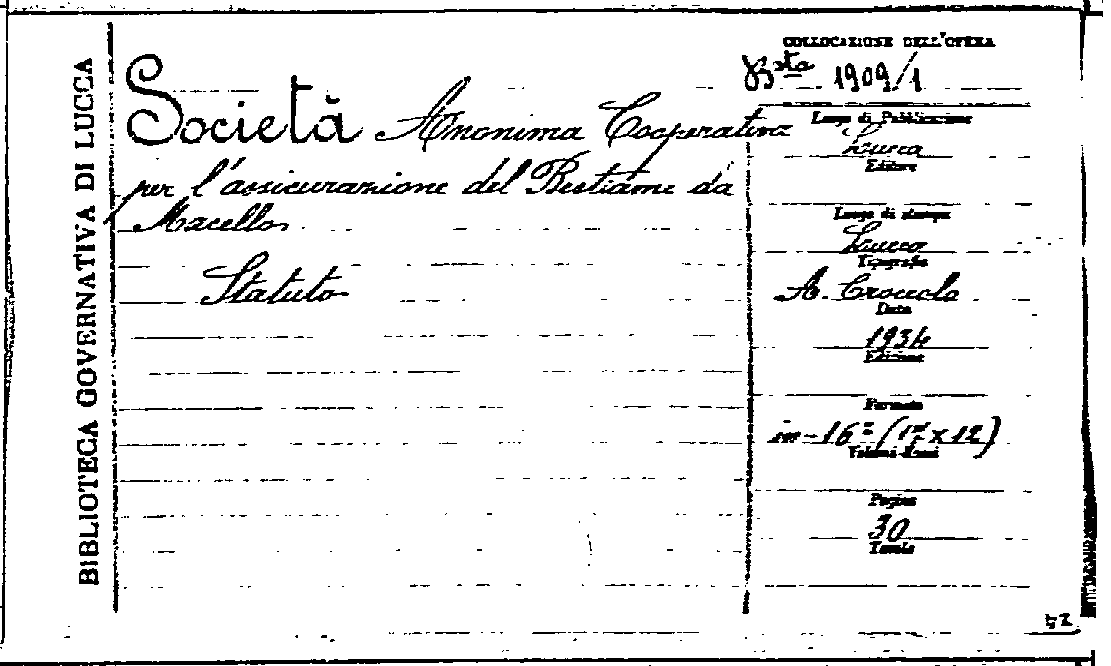 BIBLIOTECA GOVERNATIVA DI LUCCA
Società Anonima Cooperativa
per l'assicurazione del Bestiame da
Macello
Statuto
COLLOCAZIONE DELL'OPERA
Bsta 1909/1
Luogo di Pubblicazione
Lucca
Editore
Luogo di stampa
Lucca
Tipografia
A. Croccolo
Data
1934
Edizione
Formato
in-16º (17x12)
Volumi
Pagine
30
Tavole